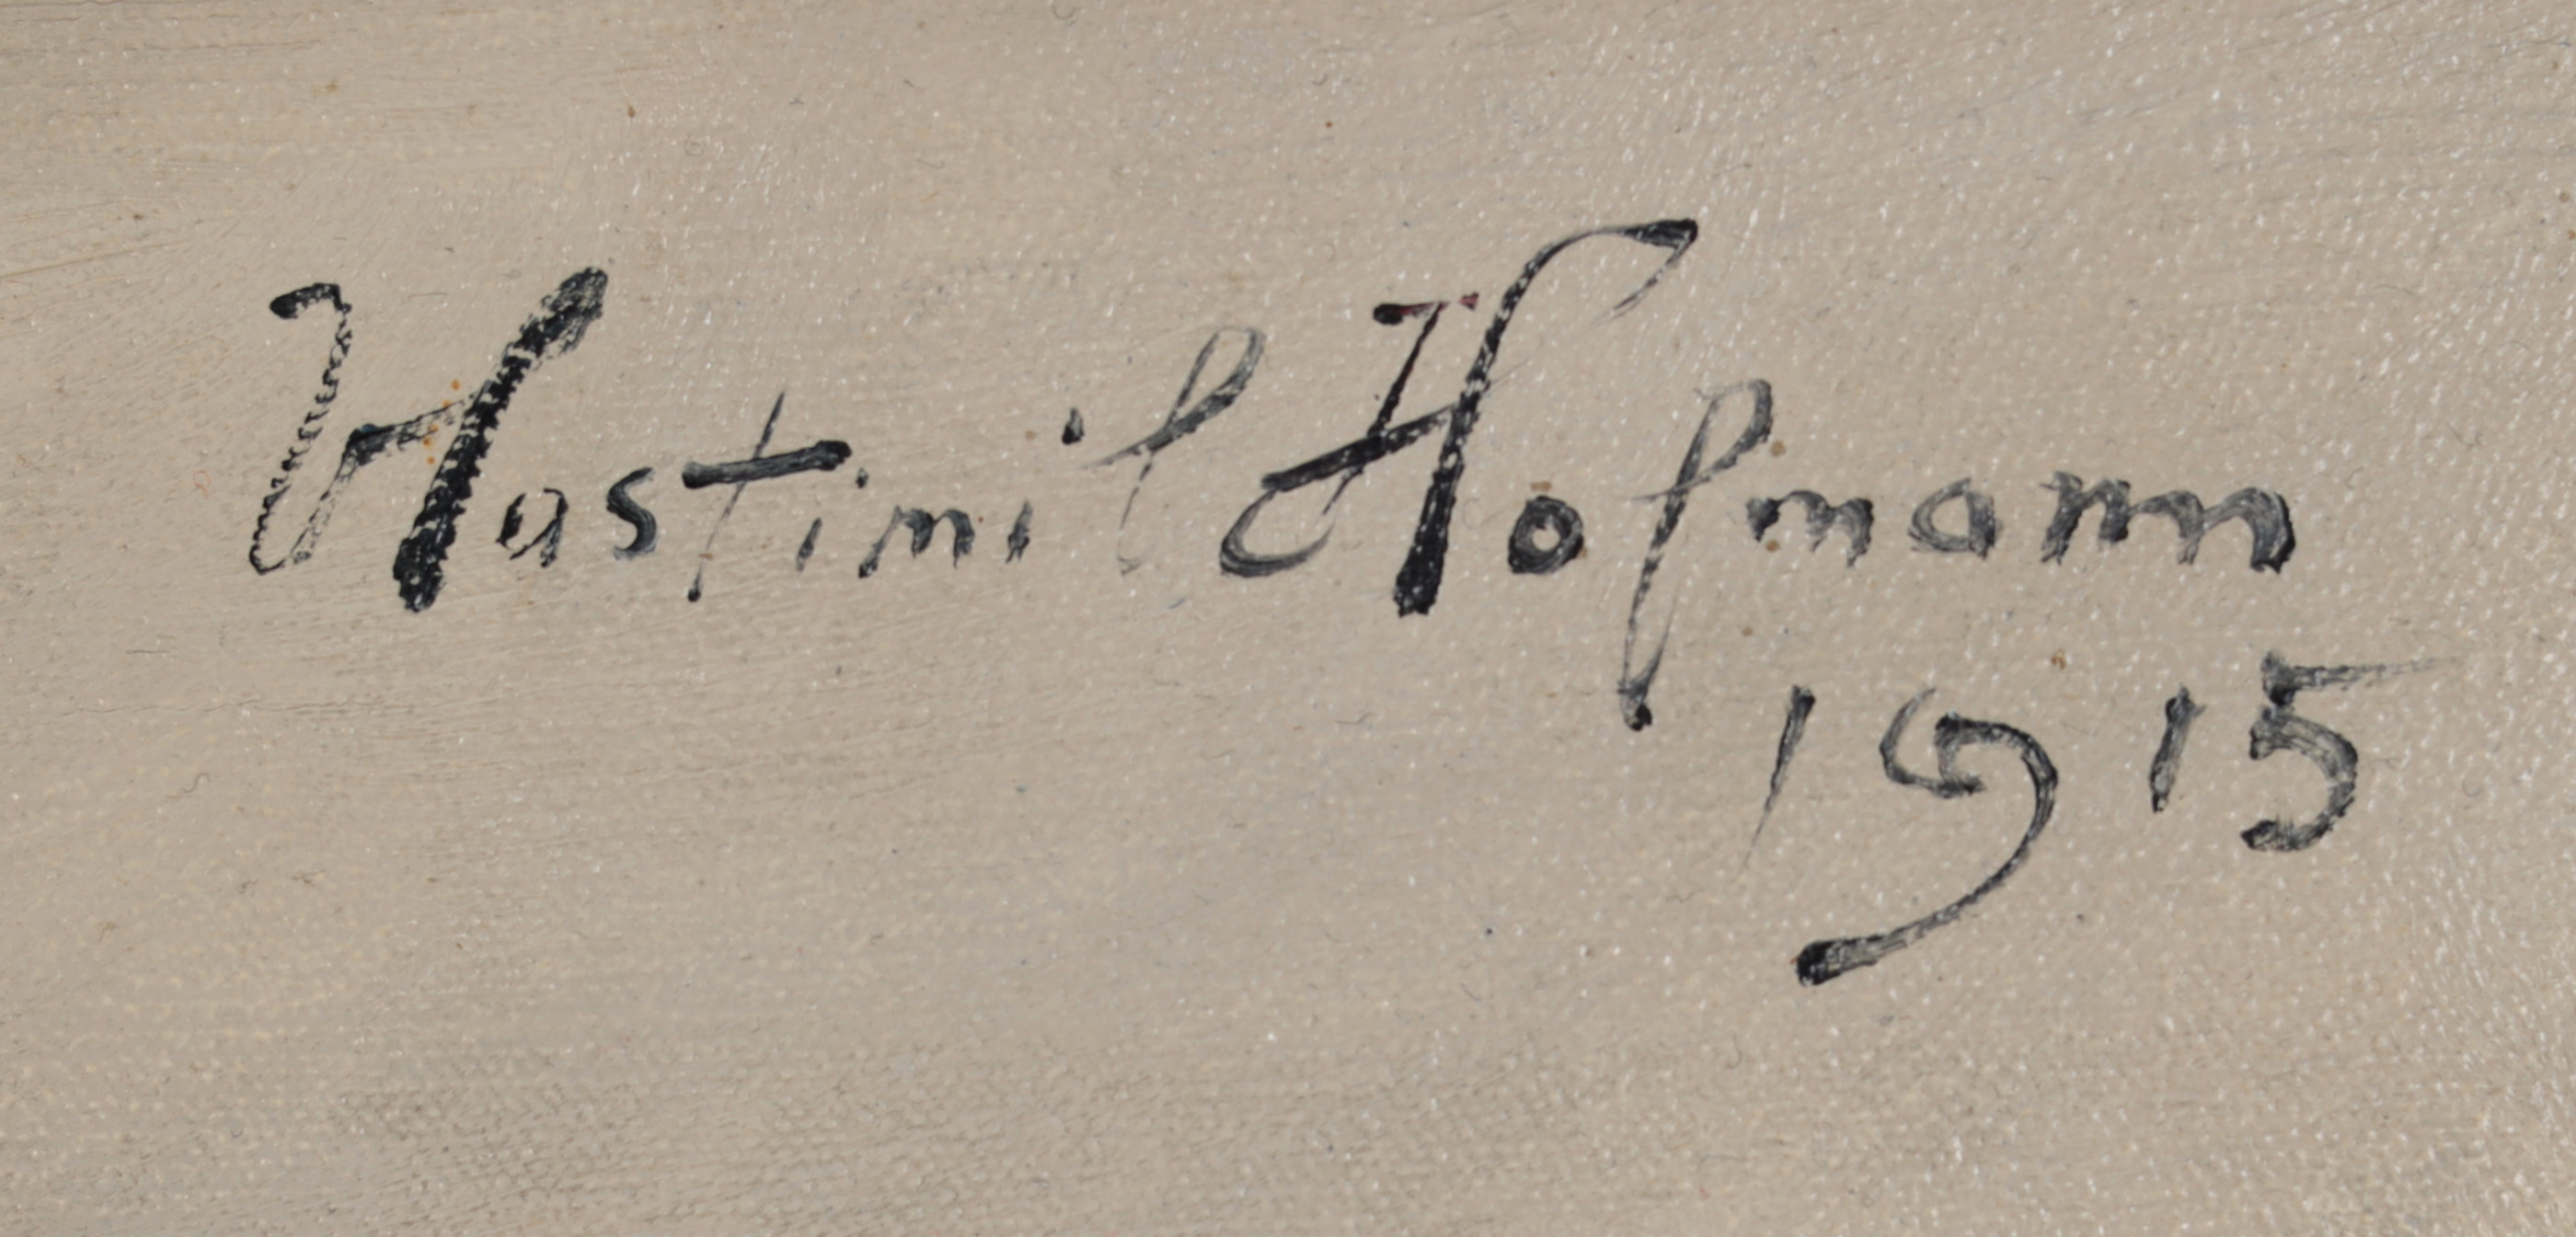 Vlastimil Hofmann
1915